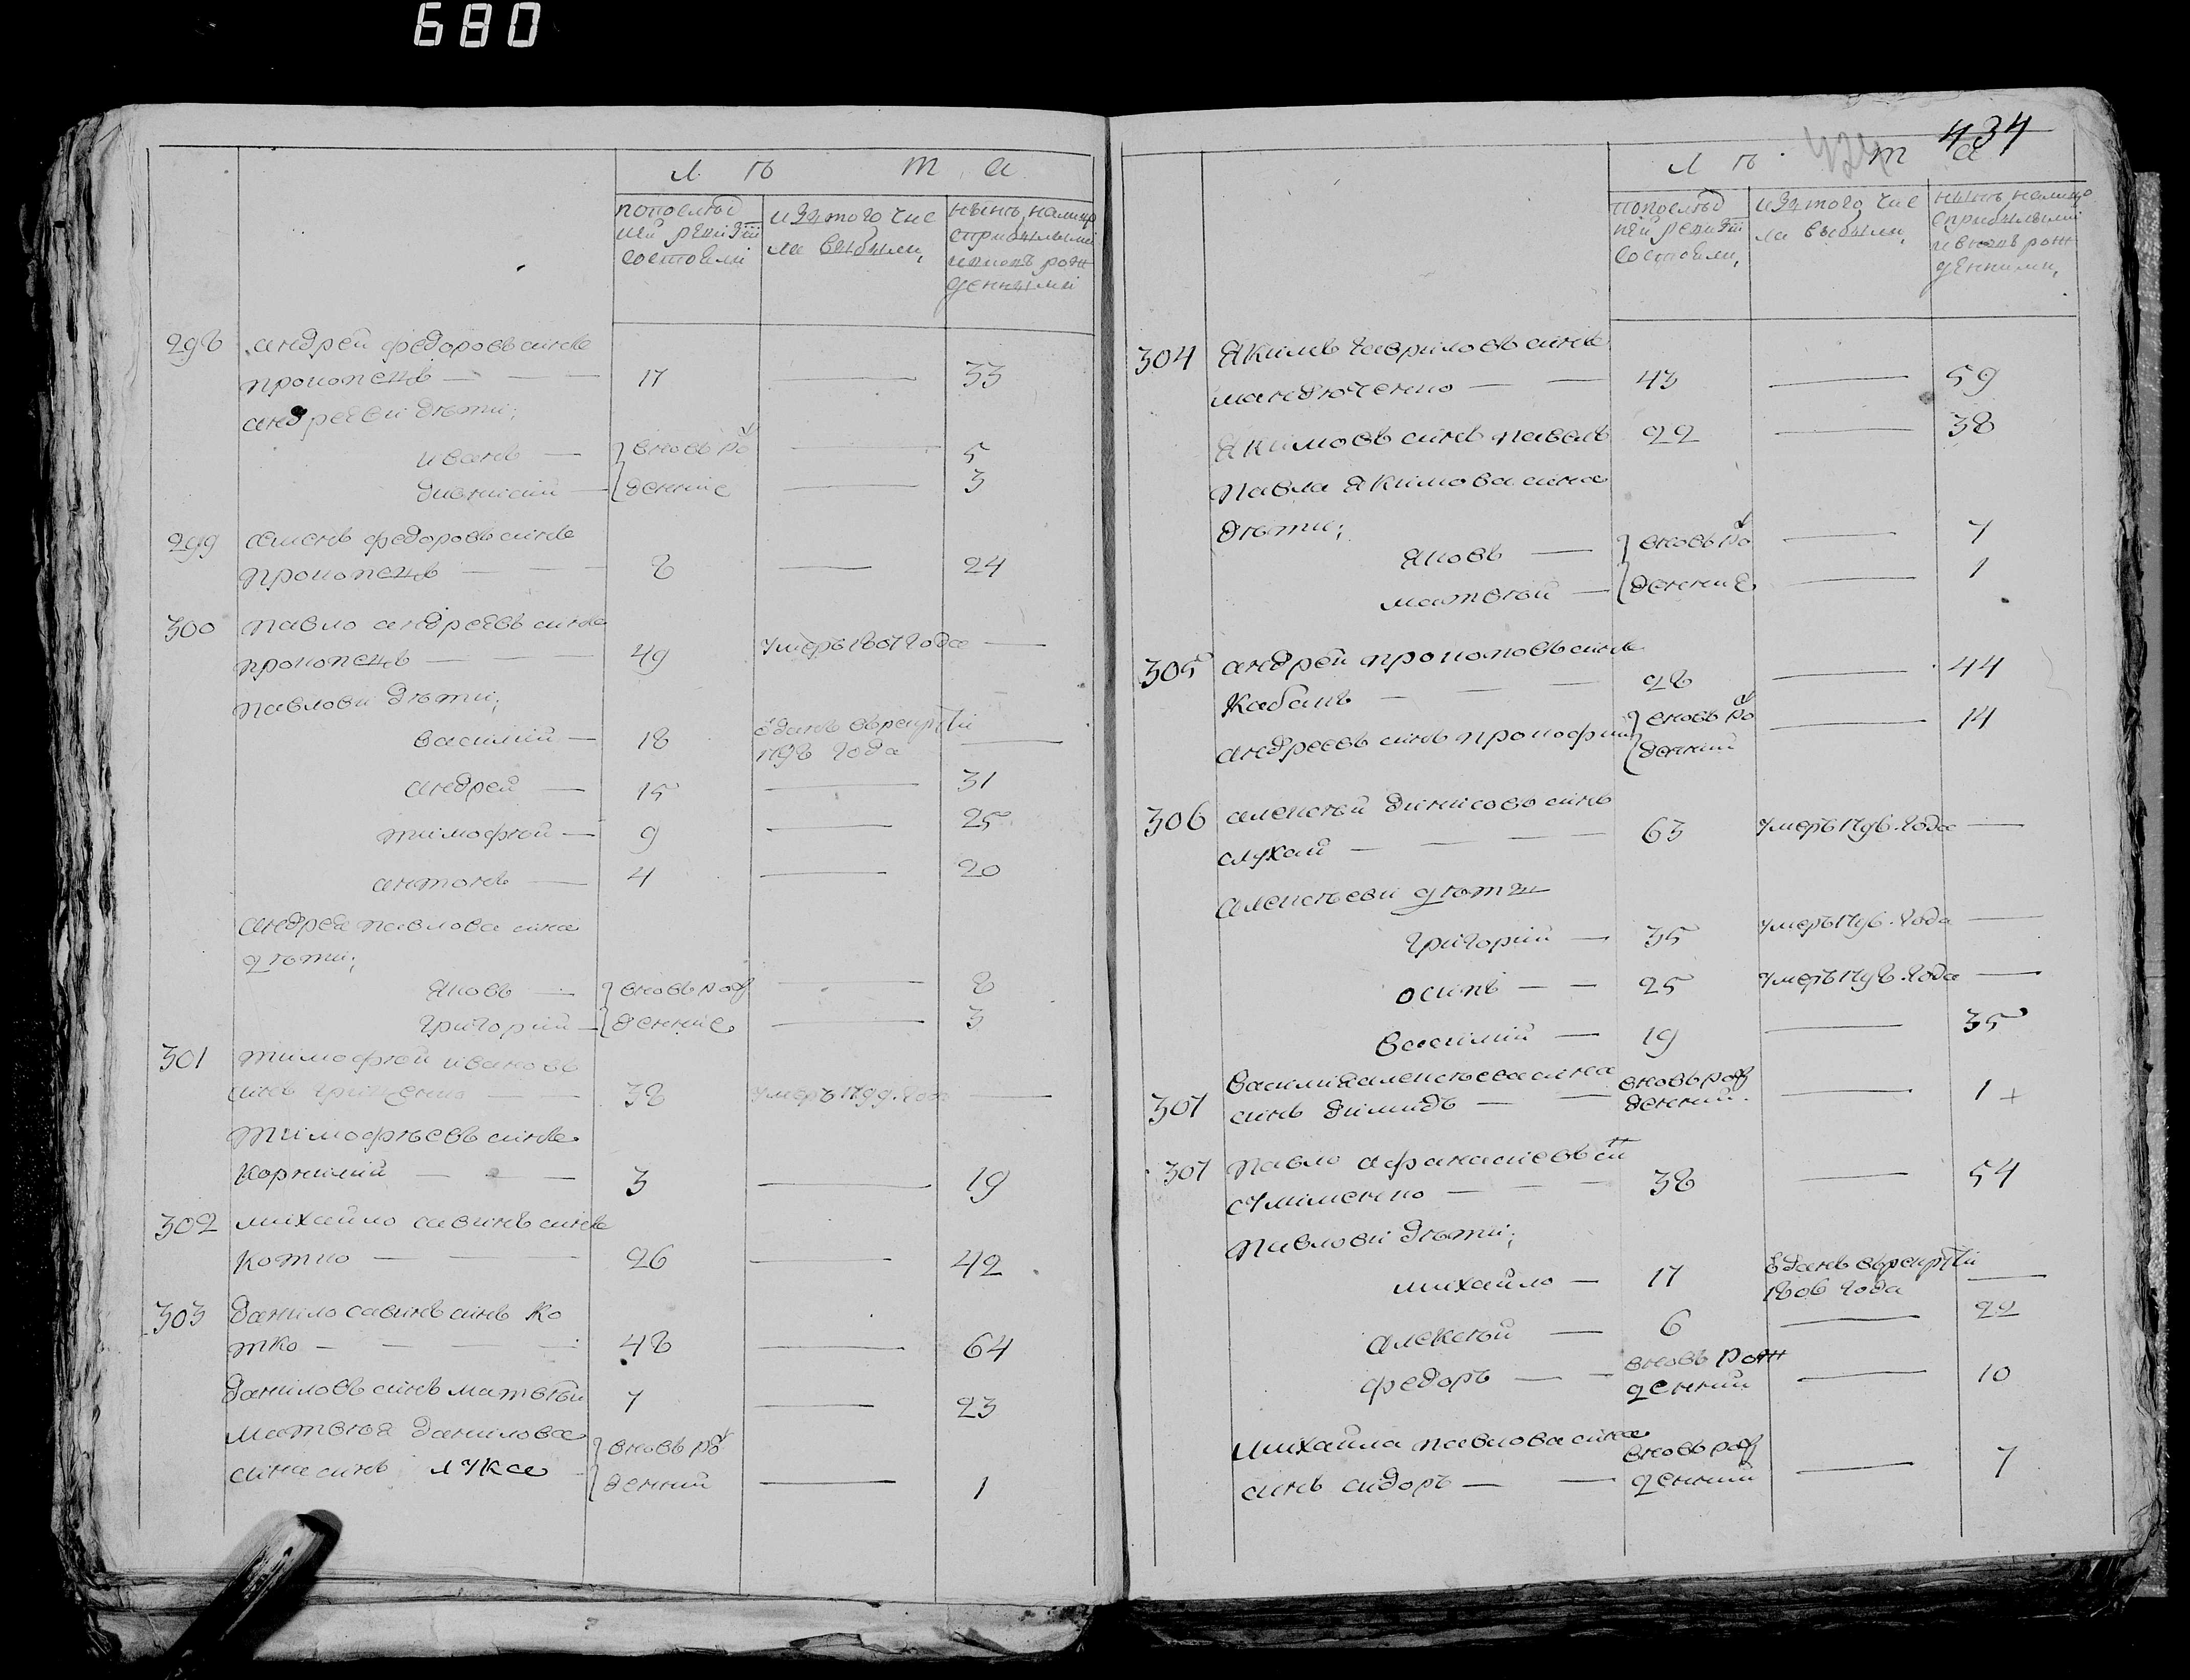 680
Лѣта
попослѣд
ней ревизіи
состояли
изъ того чис
ла выбыли,
нынѣ налицо
сприбылыми
ивновь рож
денными
298 андрей федоровъ синъ
прокопецъ — 17 — 33
андрееви дѣти;
иванъ — вновь ро 5
дионисий — денние — 3
299 семенъ федоровъ синъ
прокопецъ — 8 — 24
300 павло андреевъ синъ
прокопецъ — 49 умеръ 1801 года —
павлови дѣти;
василий — 18 зданъ врекруты
1798 года —
андрей — 15 — 31
тимофѣй — 9 — 25
антонъ — 4 — 20
андрея павлова сина
дѣти;
яковъ — вновь рож — 8
григорий — денние — 3
301 тимофѣй ивановъ
синъ грищенко — 38 умеръ 1799 году —
тимофѣевъ синъ
корнилий — 3 — 19
302 михайло савинъ синъ
котко — 26 — 42
303 данило савинъ синъ ко
тко — 48 — 64
даниловъ синъ матвѣй 7 — 23
матвѣя данилова вновь ро
сина синъ лука денний — 1
434
Лѣта
попослѣд
ней ревизіи
состояли,
изъ того чис
ла выбыли,
нынѣ налицо
сприбылыми
ивновь рож
денними,
304 Якимъ гавриловъ синъ
мандюченко — 43 — 59
Якимовъ синъ павелъ 22 — 38
Павла Якимова сина
дѣти;
яковъ — вновь ро — 7
матвѣй — денние — 1
305 андрей прокоповъ синъ
Кабанъ — 28 — 44
андреевъ синъ прокофий вновь ро — 14
денний
306 алексѣй динисовъ синъ
слухай — 63 умеръ 1796. года —
алексѣеви дѣти
григорий — 35 умеръ 1796. года —
осипъ — 25 умеръ 1798. года —
василий — 19 — 35
307 Василия алексѣева сина вновь рож
синъ димидъ — денний. — 1 +
307 павло афанасиевъ си
сулименко — 38 — 54
павлови дѣти;
михайло — 17 зданъ врекруты
1806 года —
алексѣй — 6 — 22
федоръ — вновь рож
денний — 10
михайла павлова сина вновь рож
синъ сидоръ — денний — 7